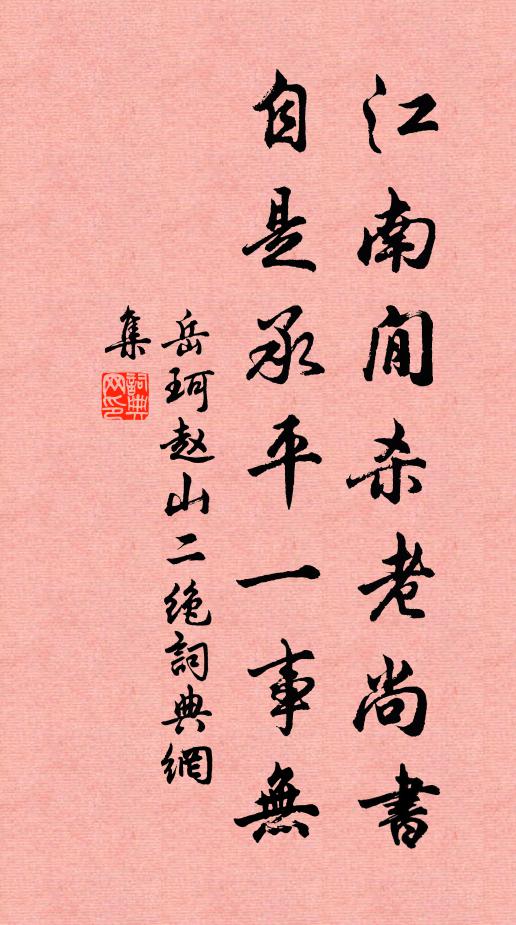 江南闲杀老尚书
自是承平一事無
岳珂赵山二绝詞典網
集
詞典
网印